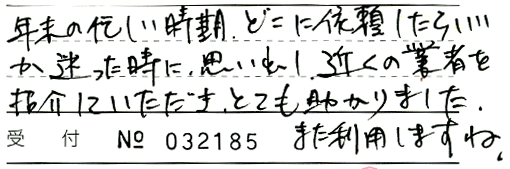 年末の忙しい時期、どこに依頼したらいい
か迷った時に、思い出し、近くの業者を
紹介していただき、とても助かりました。
受 付 № 032185 また利用しますね。